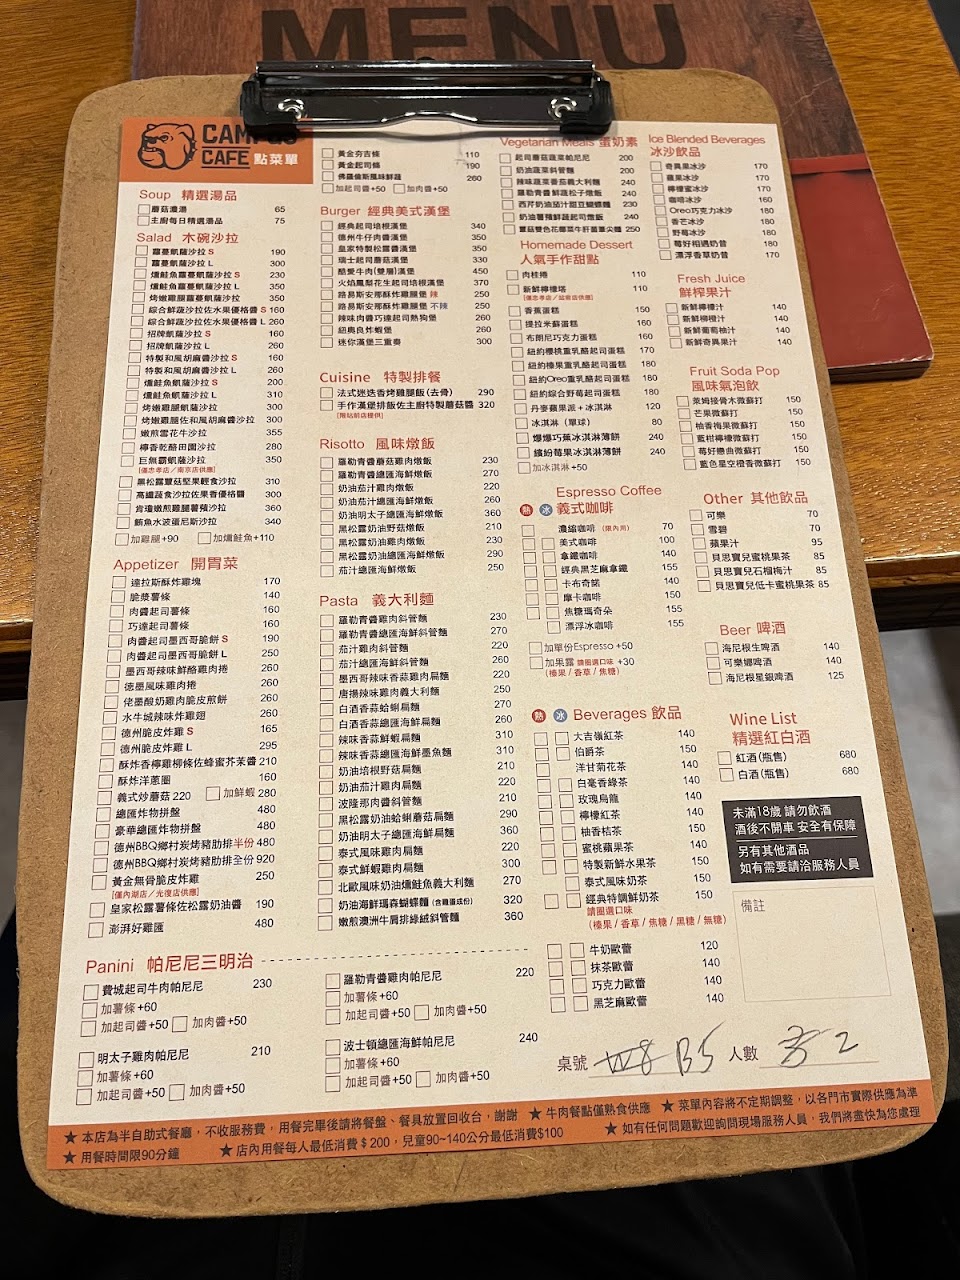 MENU
CAMPUS
CAFE 點菜單
Soup 精選湯品
蘑菇濃湯 65
主廚每日精選湯品 75
Salad 木碗沙拉
蘿蔓凱薩沙拉 S 190
蘿蔓凱薩沙拉 L 300
燻鮭魚蘿蔓凱薩沙拉 S 230
燻鮭魚蘿蔓凱薩沙拉 L 350
烤嫩雞腿蘿蔓凱薩沙拉 350
綜合鮮蔬沙拉佐水果優格醬 S 160
綜合鮮蔬沙拉佐水果優格醬 L 260
招牌凱薩沙拉 S 160
招牌凱薩沙拉 L 260
特製和風胡麻醬沙拉 S 160
特製和風胡麻醬沙拉 L 260
燻鮭魚凱薩沙拉 S 200
燻鮭魚凱薩沙拉 L 310
烤嫩雞腿凱薩沙拉 300
烤嫩雞腿佐和風胡麻醬沙拉 300
嫩煎雪花牛沙拉 355
檸香乾酪田園沙拉 280
巨無霸凱薩沙拉 350
[僅忠孝店／南京店供應]
黑松露蕈菇堅果輕食沙拉 310
高纖蔬食沙拉佐果香優格醬 300
肯瓊嫩煎雞腿薯蕷沙拉 360
鮪魚水波蛋尼斯沙拉 340
加雞腿+90 加燻鮭魚+110
Appetizer 開胃菜
達拉斯酥炸雞塊 170
脆漿薯條 140
肉醬起司薯條 160
巧達起司薯條 160
肉醬起司墨西哥脆餅 S 190
肉醬起司墨西哥脆餅 L 250
墨西哥辣味鮮酪雞肉捲 260
德墨風味雞肉捲 260
佬墨酸奶雞肉脆皮煎餅 260
水牛城辣味炸雞翅 260
德州脆皮炸雞 S 165
德州脆皮炸雞 L 295
酥炸香檸雞柳條佐蜂蜜芥茉醬 210
酥炸洋蔥圈 160
義式炒蘑菇 220 加鮮蝦 280
總匯炸物拼盤 480
豪華總匯炸物拼盤 480
德州BBQ鄉村炭烤豬肋排半份 480
德州BBQ鄉村炭烤豬肋排全份 920
黃金無骨脆皮炸雞 250
[僅內湖店／光復店供應]
皇家松露薯條佐松露奶油醬 190
澎湃好雞匯 480
黃金夯吉條 110
黃金起司條 190
佛羅倫斯風味鮮蔬 260
加起司醬+50 加肉醬+50
Burger 經典美式漢堡
經典起司培根漢堡 340
德州牛仔肉醬漢堡 350
皇家特製松露醬漢堡 350
瑞士起司蘑菇漢堡 330
酷愛牛肉(雙層)漢堡 450
火焰鳳梨花生起司培根漢堡 370
路易斯安那酥炸雞腿堡 辣 250
路易斯安那酥炸雞腿堡 不辣 250
辣味肉醬巧達起司熱狗堡 260
紐奧良炸蝦堡 260
迷你漢堡三重奏 300
Cuisine 特製排餐
法式迷迭香烤雞腿飯(去骨) 290
手作漢堡排飯佐主廚特製蘑菇醬 320
[限站前店提供]
Risotto 風味燉飯
羅勒青醬蘑菇雞肉燉飯 230
羅勒青醬總匯海鮮燉飯 270
奶油茄汁雞肉燉飯 220
奶油茄汁總匯海鮮燉飯 260
奶油明太子總匯海鮮燉飯 360
黑松露奶油野菇燉飯 210
黑松露奶油雞肉燉飯 230
黑松露奶油總匯海鮮燉飯 290
茄汁總匯海鮮燉飯 250
Pasta 義大利麵
羅勒青醬雞肉斜管麵 230
羅勒青醬總匯海鮮斜管麵 270
茄汁雞肉斜管麵 220
茄汁總匯海鮮斜管麵 260
墨西哥辣味香蒜雞肉扁麵 220
唐揚辣味雞肉義大利麵 250
白酒香蒜蛤蜊扁麵 270
白酒香蒜總匯海鮮扁麵 260
辣味香蒜鮮蝦扁麵 310
辣味香蒜總匯海鮮墨魚麵 310
奶油培根野菇扁麵 210
奶油茄汁雞肉扁麵 220
波隆那肉醬斜管麵 210
黑松露奶油蛤蜊蘑菇扁麵 290
奶油明太子總匯海鮮扁麵 360
泰式風味雞肉扁麵 220
泰式鮮蝦雞肉扁麵 300
北歐風味奶油燻鮭魚義大利麵 270
奶油海鮮瑪森蝴蝶麵 (含雞蛋成份) 320
嫩煎澳洲牛肩排綠絨斜管麵 360
Vegetarian Meals 蛋奶素
起司蘑菇蔬菜帕尼尼 200
奶油蔬菜斜管麵 200
辣味蔬菜番茄義大利麵 240
羅勒青醬鮮蔬松子燉飯 240
西芹奶油茄汁甜豆蝴蝶麵 230
奶油薯蕷鮮蔬起司燉飯 240
蕈菇雙色花椰菜牛肝蕈蕈尖麵 250
Homemade Dessert
人氣手作甜點
肉桂捲 110
新鮮檸檬塔 110
[僅忠孝店／站前店供應]
香蕉蛋糕 150
提拉米蘇蛋糕 160
布朗尼巧克力蛋糕 160
紐約櫻桃重乳酪起司蛋糕 170
紐約榛果重乳酪起司蛋糕 180
紐約Oreo重乳酪起司蛋糕 180
紐約綜合野莓起司蛋糕 180
丹麥蘋果派＋冰淇淋 120
冰淇淋（單球） 80
爆爆巧蕉冰淇淋薄餅 240
繽紛莓果冰淇淋薄餅 240
加冰淇淋+50
Espresso Coffee
熱 冰 義式咖啡
濃縮咖啡 (限內用) 70
美式咖啡 100
拿鐵咖啡 140
經典黑芝麻拿鐵 155
卡布奇諾 140
摩卡咖啡 150
焦糖瑪奇朵 155
漂浮冰咖啡 155
加單份Espresso +50
加果露 請圈選口味 +30
(榛果 / 香草 / 焦糖)
熱 冰 Beverages 飲品
大吉嶺紅茶 140
伯爵茶 150
洋甘菊花茶 140
白毫香綠茶 140
玫瑰烏龍 140
檸檬紅茶 140
柚香桔茶 150
蜜桃蘋果茶 140
特製新鮮水果茶 150
泰式風味奶茶 150
經典特調鮮奶茶 150
請圈選口味
(榛果 / 香草 / 焦糖 / 黑糖 / 無糖)
牛奶歐蕾 120
抹茶歐蕾 140
巧克力歐蕾 140
黑芝麻歐蕾 140
Ice Blended Beverages
冰沙飲品
奇異果冰沙 170
蘋果冰沙 170
檸檬蜜冰沙 170
咖啡冰沙 160
Oreo巧克力冰沙 180
香芒冰沙 180
野莓冰沙 180
莓好相遇奶昔 180
漂浮香草奶昔 180
Fresh Juice
鮮榨果汁
新鮮檸檬汁 140
新鮮柳橙汁 140
新鮮葡萄柚汁 140
新鮮奇異果汁 140
Fruit Soda Pop
風味氣泡飲
萊姆接骨木微蘇打 150
芒果微蘇打 150
柚香梅果微蘇打 150
藍柑檸檬微蘇打 150
莓好戀曲微蘇打 150
藍色星空橙香微蘇打 150
Other 其他飲品
可樂 70
雪碧 70
蘋果汁 95
貝思寶兒蜜桃果茶 85
貝思寶兒石榴梅汁 85
貝思寶兒低卡蜜桃果茶 85
Beer 啤酒
海尼根生啤酒 140
可樂娜啤酒 140
海尼根星銀啤酒 125
Wine List
精選紅白酒
紅酒(瓶售) 680
白酒(瓶售) 680
未滿18歲 請勿飲酒
酒後不開車 安全有保障
另有其他酒品
如有需要請洽服務人員
備註
Panini 帕尼尼三明治
費城起司牛肉帕尼尼 230
加薯條+60
加起司醬+50 加肉醬+50
明太子雞肉帕尼尼 210
加薯條+60
加起司醬+50 加肉醬+50
羅勒青醬雞肉帕尼尼 220
加薯條+60
加起司醬+50 加肉醬+50
波士頓總匯海鮮帕尼尼 240
加薯條+60
加起司醬+50 加肉醬+50
桌號 B5 人數 2
★ 本店為半自助式餐廳，不收服務費，用餐完畢後請將餐盤、餐具放置回收台，謝謝 ★ 牛肉餐點僅熟食供應 ★ 菜單內容將不定期調整，以各門市實際供應為準
★ 用餐時間限90分鐘 ★ 店內用餐每人最低消費＄200，兒童90~140公分最低消費$100 ★ 如有任何問題歡迎詢問現場服務人員，我們將盡快為您處理